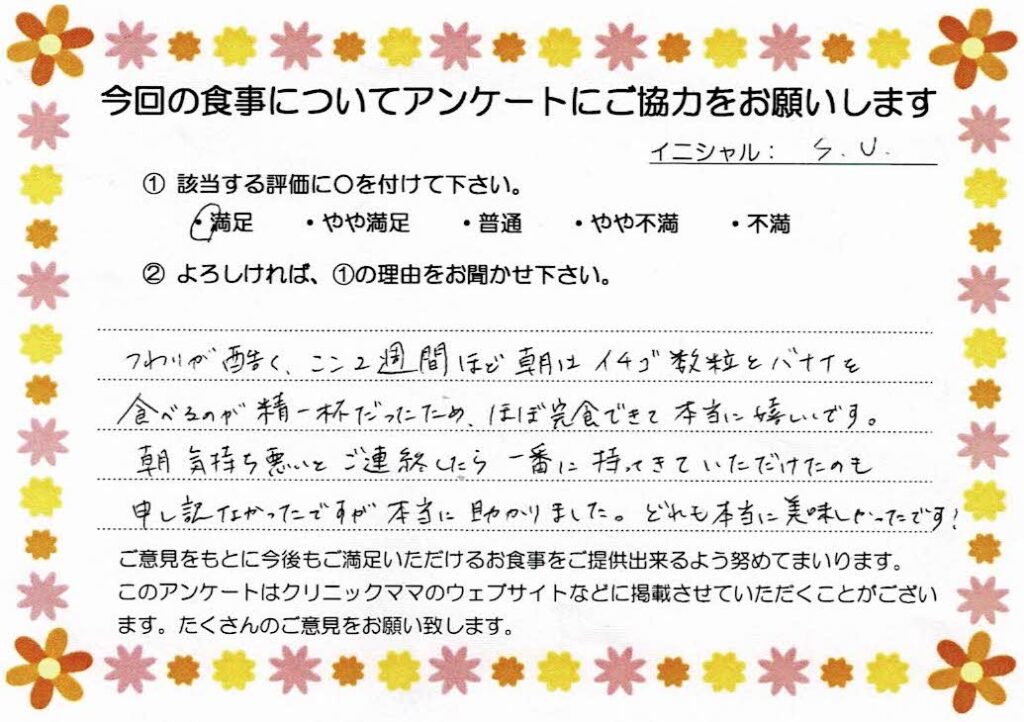 今回の食事についてアンケートにご協力をお願いします
イニシャル： S.U.
① 該当する評価に〇を付けて下さい。
・満足 ・やや満足 ・普通 ・やや不満 ・不満
② よろしければ、①の理由をお聞かせ下さい。
つわりが酷く、ここ2週間ほど朝はイチゴ数粒とバナナを
食べるのが精一杯だったため、ほぼ完食できて本当に嬉しいです。
朝気持ち悪いとご連絡したら一番に持ってきていただけたのも
申し訳なかったですが本当に助かりました。どれも本当に美味しかったです!
ご意見をもとに今後もご満足いただけるお食事をご提供出来るよう努めてまいります。
このアンケートはクリニックママのウェブサイトなどに掲載させていただくことがござい
ます。たくさんのご意見をお願い致します。